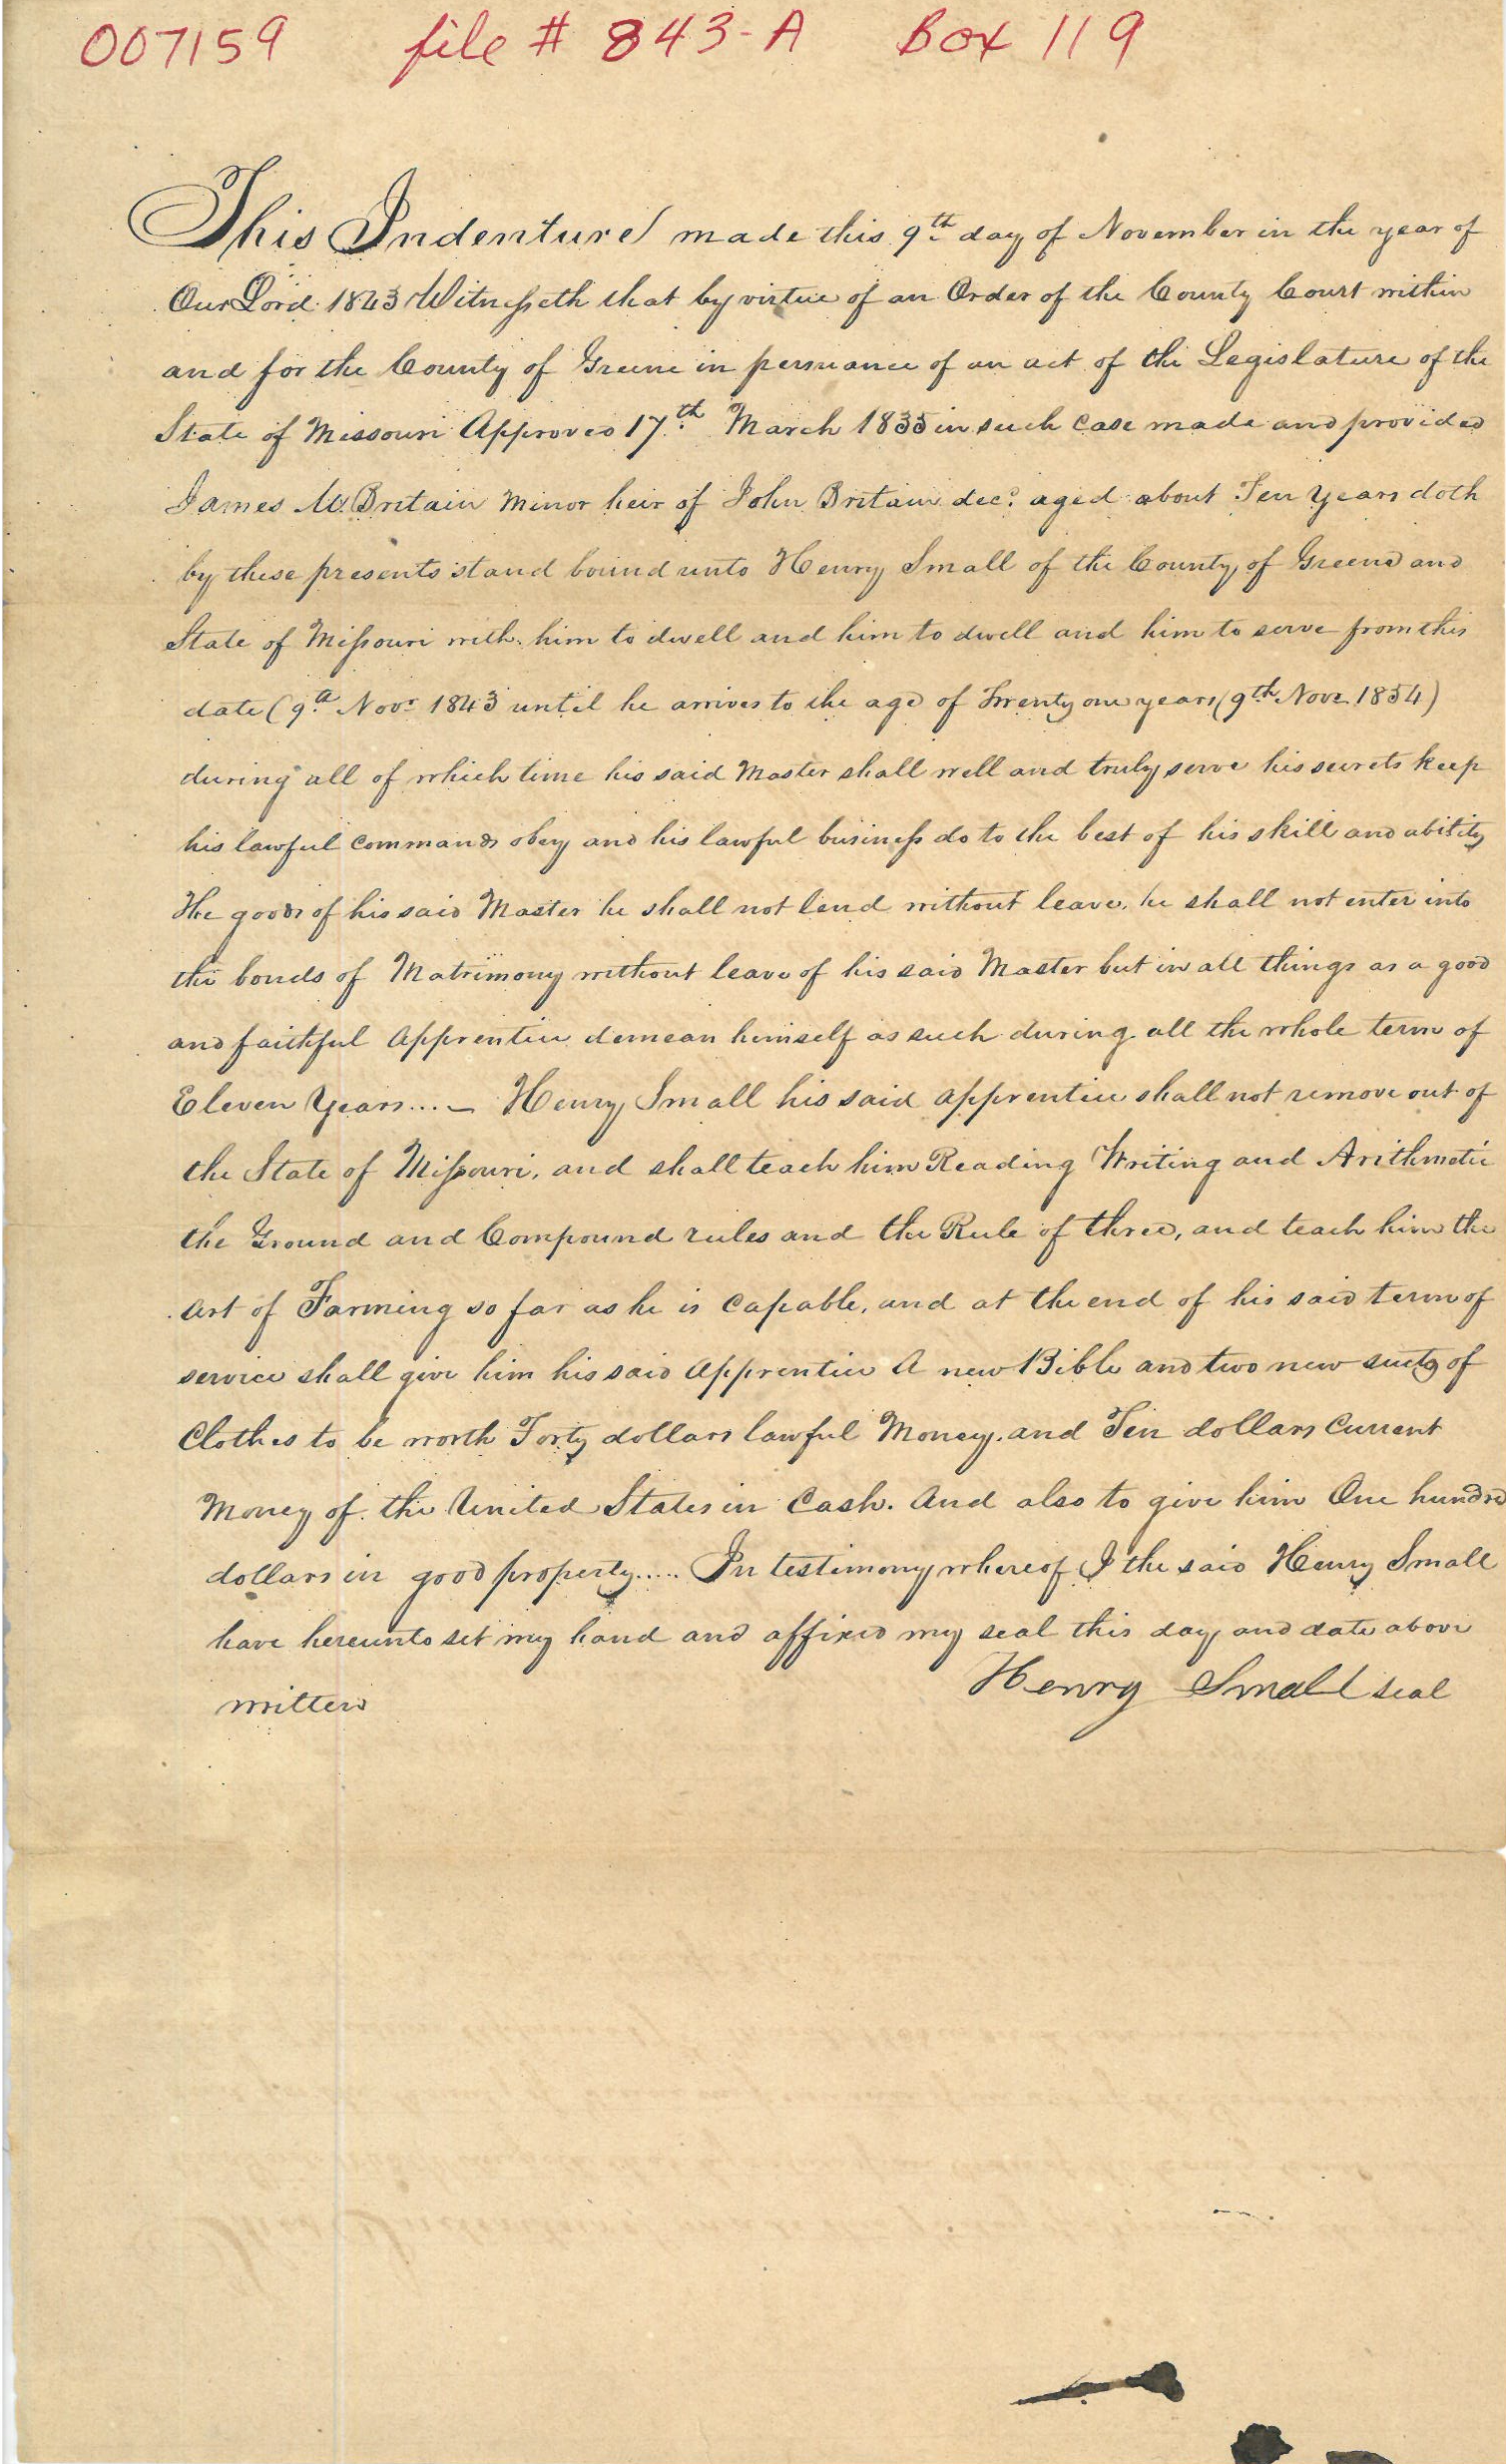 007159 file # 843-A Box 119
This Indenture made this 9th day of November in the year of
Our Lord 1843 Witnesseth that by virtue of an Order of the County Court within
and for the County of Greene in persuance of an act of the Legislature of the
State of Missouri Approved 17th March 1835 in such case made and provided
James W. Britain Minor heir of John Britain decd. aged about Ten Years doth
by these presents stand bound unto Henry Small of the County of Greene and
State of Missouri with him to dwell and him to dwell and him to serve from this
date (9th Novr 1843 until he arrives to the age of Twenty one years (9th Novr 1854)
during all of which time his said Master shall well and truly serve his secrets keep
his lawful commands obey and his lawful business do to the best of his skill and ability
The goods of his said Master he shall not lend without leave. he shall not enter into
the bonds of Matrimony without leave of his said Master but in all things as a good
and faithful Apprentice demean himself as such during all the whole term of
Eleven Years.... Henry Small his said apprentice shall not remove out of
the State of Missouri, and shall teach him Reading Writing and Arithmetic
the Ground and Compound rules and the Rule of three, and teach him the
art of Farming so far as he is Capable, and at the end of his said term of
service shall give him his said Apprentice A new Bible and two new suits of
Clothes to be worth Forty dollars lawful Money. and Ten dollars Current
Money of the United States in Cash. And also to give him One hundred
dollars in good property..... In testimony whereof I the said Henry Small
have hereunto set my hand and affixed my seal this day and date above
written Henry Small seal